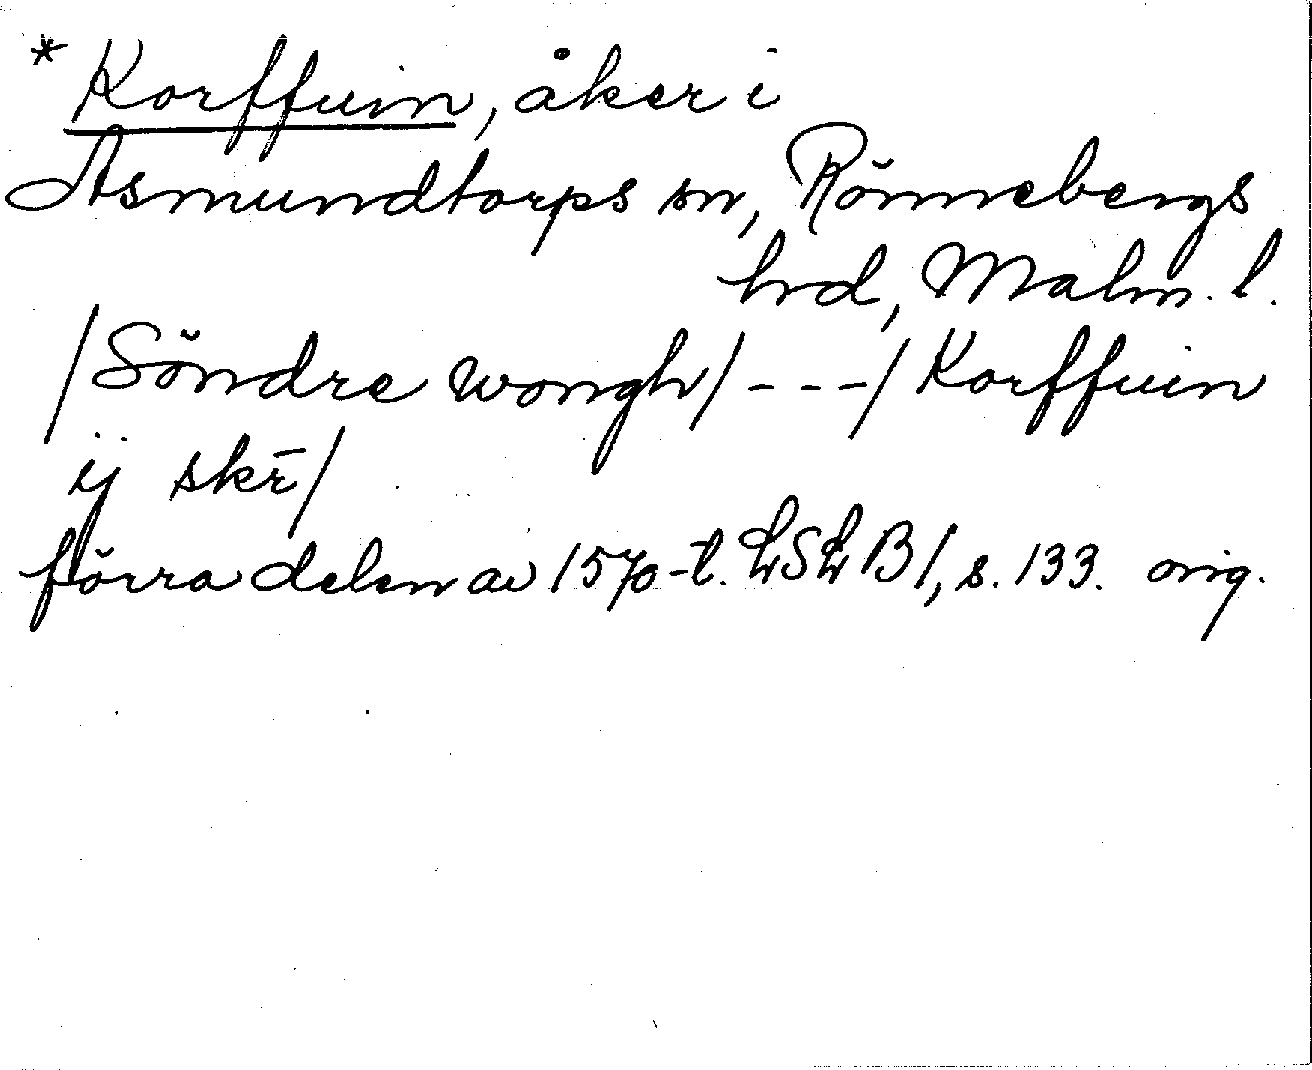 * Korffuin, åker i
Asmundtorps sn, Rönnebergs
hrd, Malm. l.
/Söndre wongh/ - - - / Korffuin
ij skr̄/
förra delen av 1570-t. LSLB1, s. 133. orig.